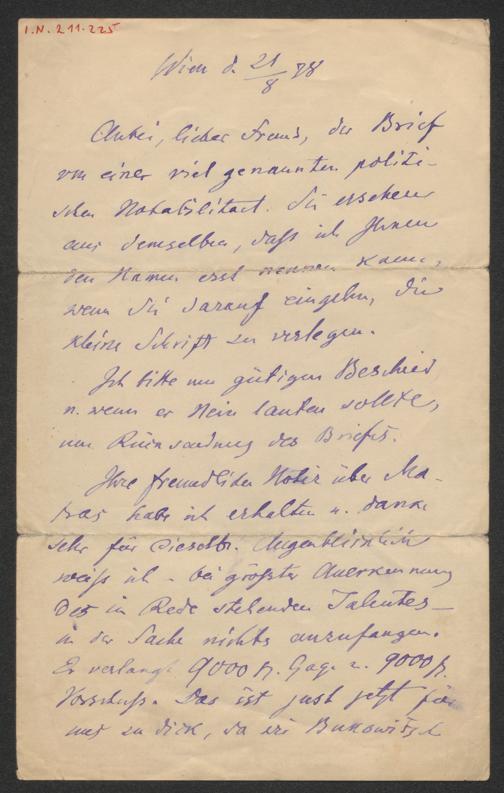 I.N. 211.225
Wien d. 21/8 78
Anbei, lieber Freund, der Brief
von einer viel genannten politi-
schen Notabilität. Sie ersehen
aus demselben, daß ich Ihnen
den Namen erst nennen kann,
wenn Sie darauf eingehn, die
kleine Schrift zu verlegen.
Ich bitte um gütigen Bescheid
u. wenn er Nein lauten sollte,
um Rücksendung des Briefes.
Ihre freundliche Notiz über Ma-
tras habe ich erhalten u. danke
sehr für dieselbe. Augenblicklich
weiß ich – bei größter Anerkennung
des in Rede stehenden Talentes –
in der Sache nichts anzufangen.
Er verlangt 9000 fl. Gage u. 9000 fl.
Vorschuß. Das ist just jetzt für
uns zu dick, da wir